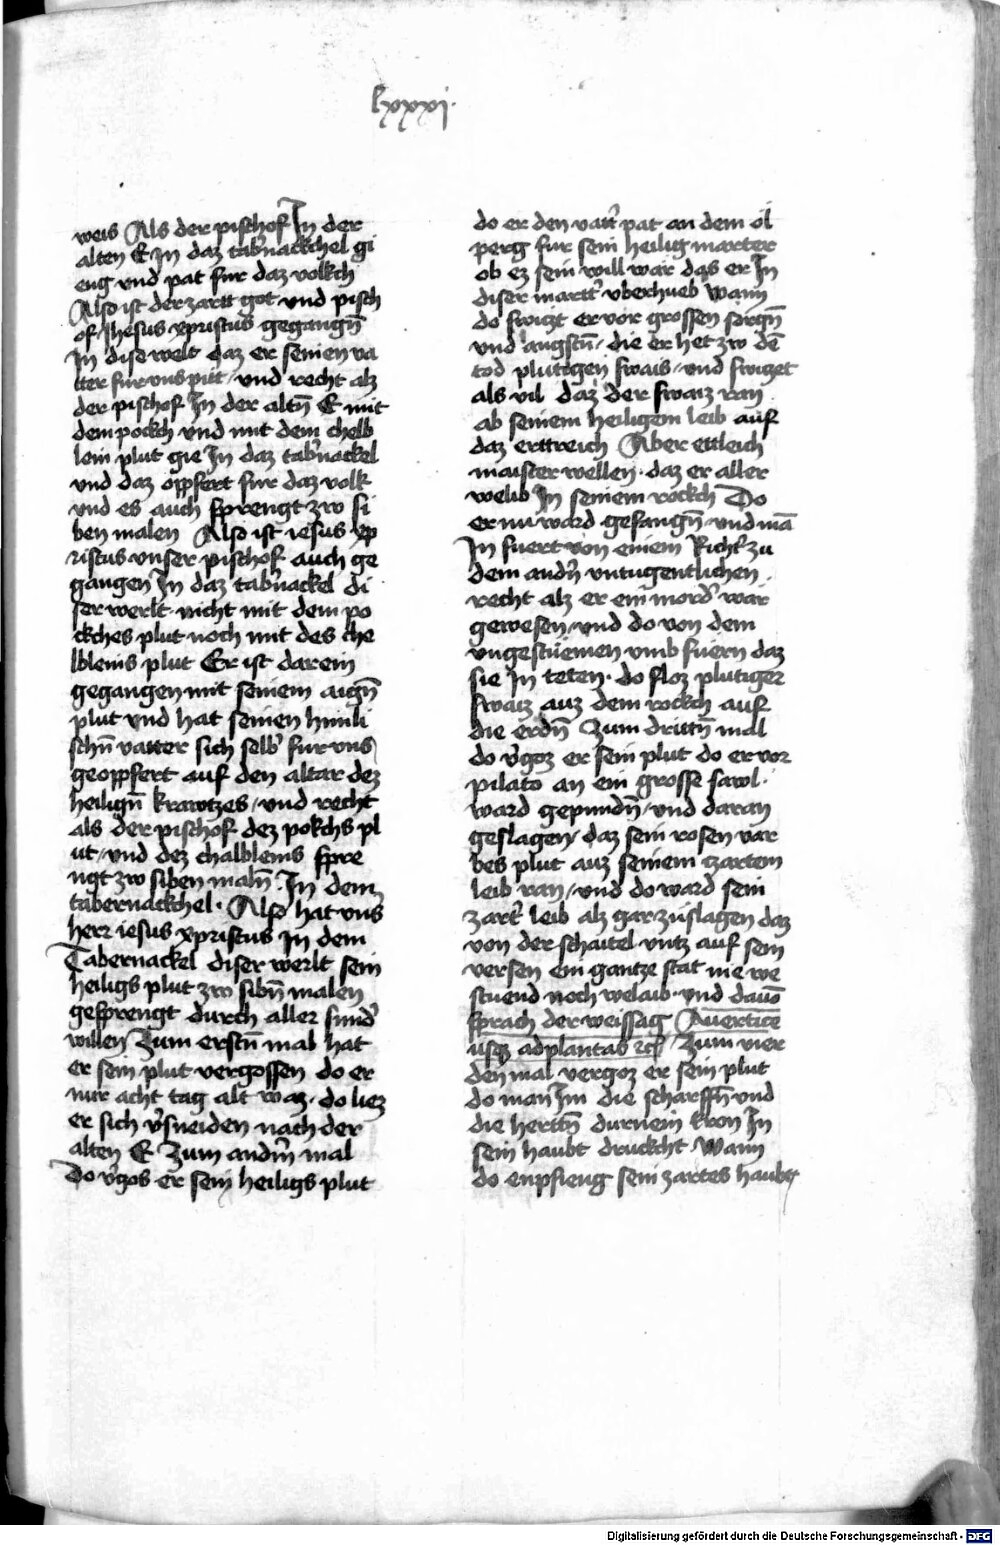 lxxxj.
weis Als der pischof Jn der
alten E Jn daz tab'nackchel gi
eng vnd pat fur daz volkch
Also ist der zartt got vnd pisch
of Jhesus xpristus gegangn̄
Jn dise welt daz er seinen va
tter fur vns pitt / vnd recht alz
der pischof Jn der altn̄ E mit
dem pockch vnd mit dem chelb
lein plut gie Jn daz tab'nackel
vnd daz oppfert fur daz volk
vnd es auch sprengt zw si
ben malen Also ist iesus xp
ristus vnser pischof auch ge
gangen Jn daz tab'nackel di
ser werlt nicht mit dem po
ckches plut noch mit des che
lbleins plut Er ist darein
gegangen mit seinem aign̄
plut vnd hat seinen himli
schn̄ vatter sich selb' fur vns
geoppfert auf den altar dez
heilign̄ krawtzes / vnd recht
als der pischof dez pokchs pl
ut / vnd dez chalbleins spre
ngt zw siben maln̄ Jn dem
tabernackchel · Also hat vns'
herr iesus xpristus Jn dem
Tabernackel diser werlt sein
heiligs plut zw sibn̄ malen
gesprengt durch aller sund'
willen Zum erstn̄ mal hat
er sein plut vergossen do er
nur acht tag alt waz · do liez
er sich v'sneiden nach der
alten E Zum andn̄ mal
Do v'gos er sein heiligs plut
do er den vatt' pat an dem öl
perg fur sein heilig marter
ob ez sein will wär das er Jn
diser martt' vberhueb Wann
do swiczt er vor grossen sorgn̄
vnd angstn̄ / die er het zw dē
tod plutigen swais / vnd swiczet
als vil daz der swaiz ran
ab seinem heiligem leib auf
daz erttreich Aber ettleich
maister wellen · daz er aller
welib Jn seinem rockch Do
er nu ward gefangn̄ vnd mā
Jn fuert von einem Richt' zu
dem andn̄ vntugentlichen
recht alz er ein mord' wär
gewesen / vnd do von dem
vngestuemen vmb fuern daz
sie Jn teten · do floz plutiger
swaiz auz dem rockch auf
die erdn̄ Zum drittn̄ mal
do v'goz er sein plut do er vor
pilato an ein grosse sawl ·
ward gepundn̄ / vnd daran
geslagen / daz sein rosen var
bes plut auz seinem zartem
leib ran / vnd do ward sein
zart' leib alz gar zuslagen daz
von der schaitel vntz auf sein
versen ein gantze stat nie we
stuend noch welaib · vnd dauō
sprach der weissag A uertice
usqz ad plantas ⁊c̄ / Zum vier
den mal vergoz er sein plut
do man Jm die scharffn̄ vnd
die hertn̄ durnein kron Jn
sein haubt druckcht Wann
do enpfieng sein zartes haubt
Digitalisierung gefördert durch die Deutsche Forschungsgemeinschaft - DFG